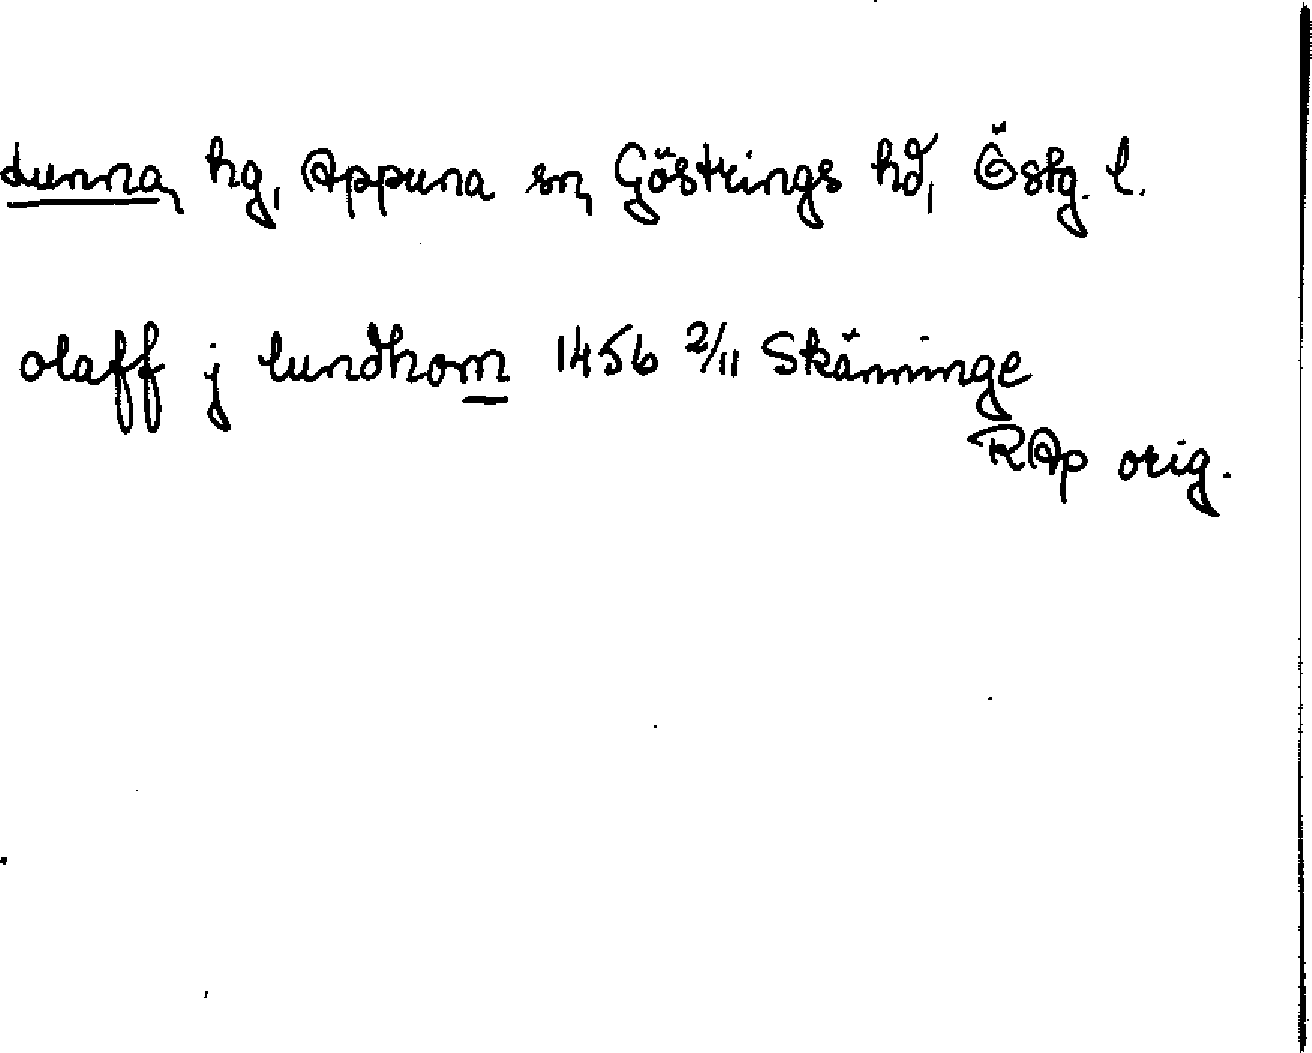 Lunna, hg, Appuna sn, Göstrings hd, Östg. l.
olaff j lundhom 1456 2/11 Skänninge
RAp orig.